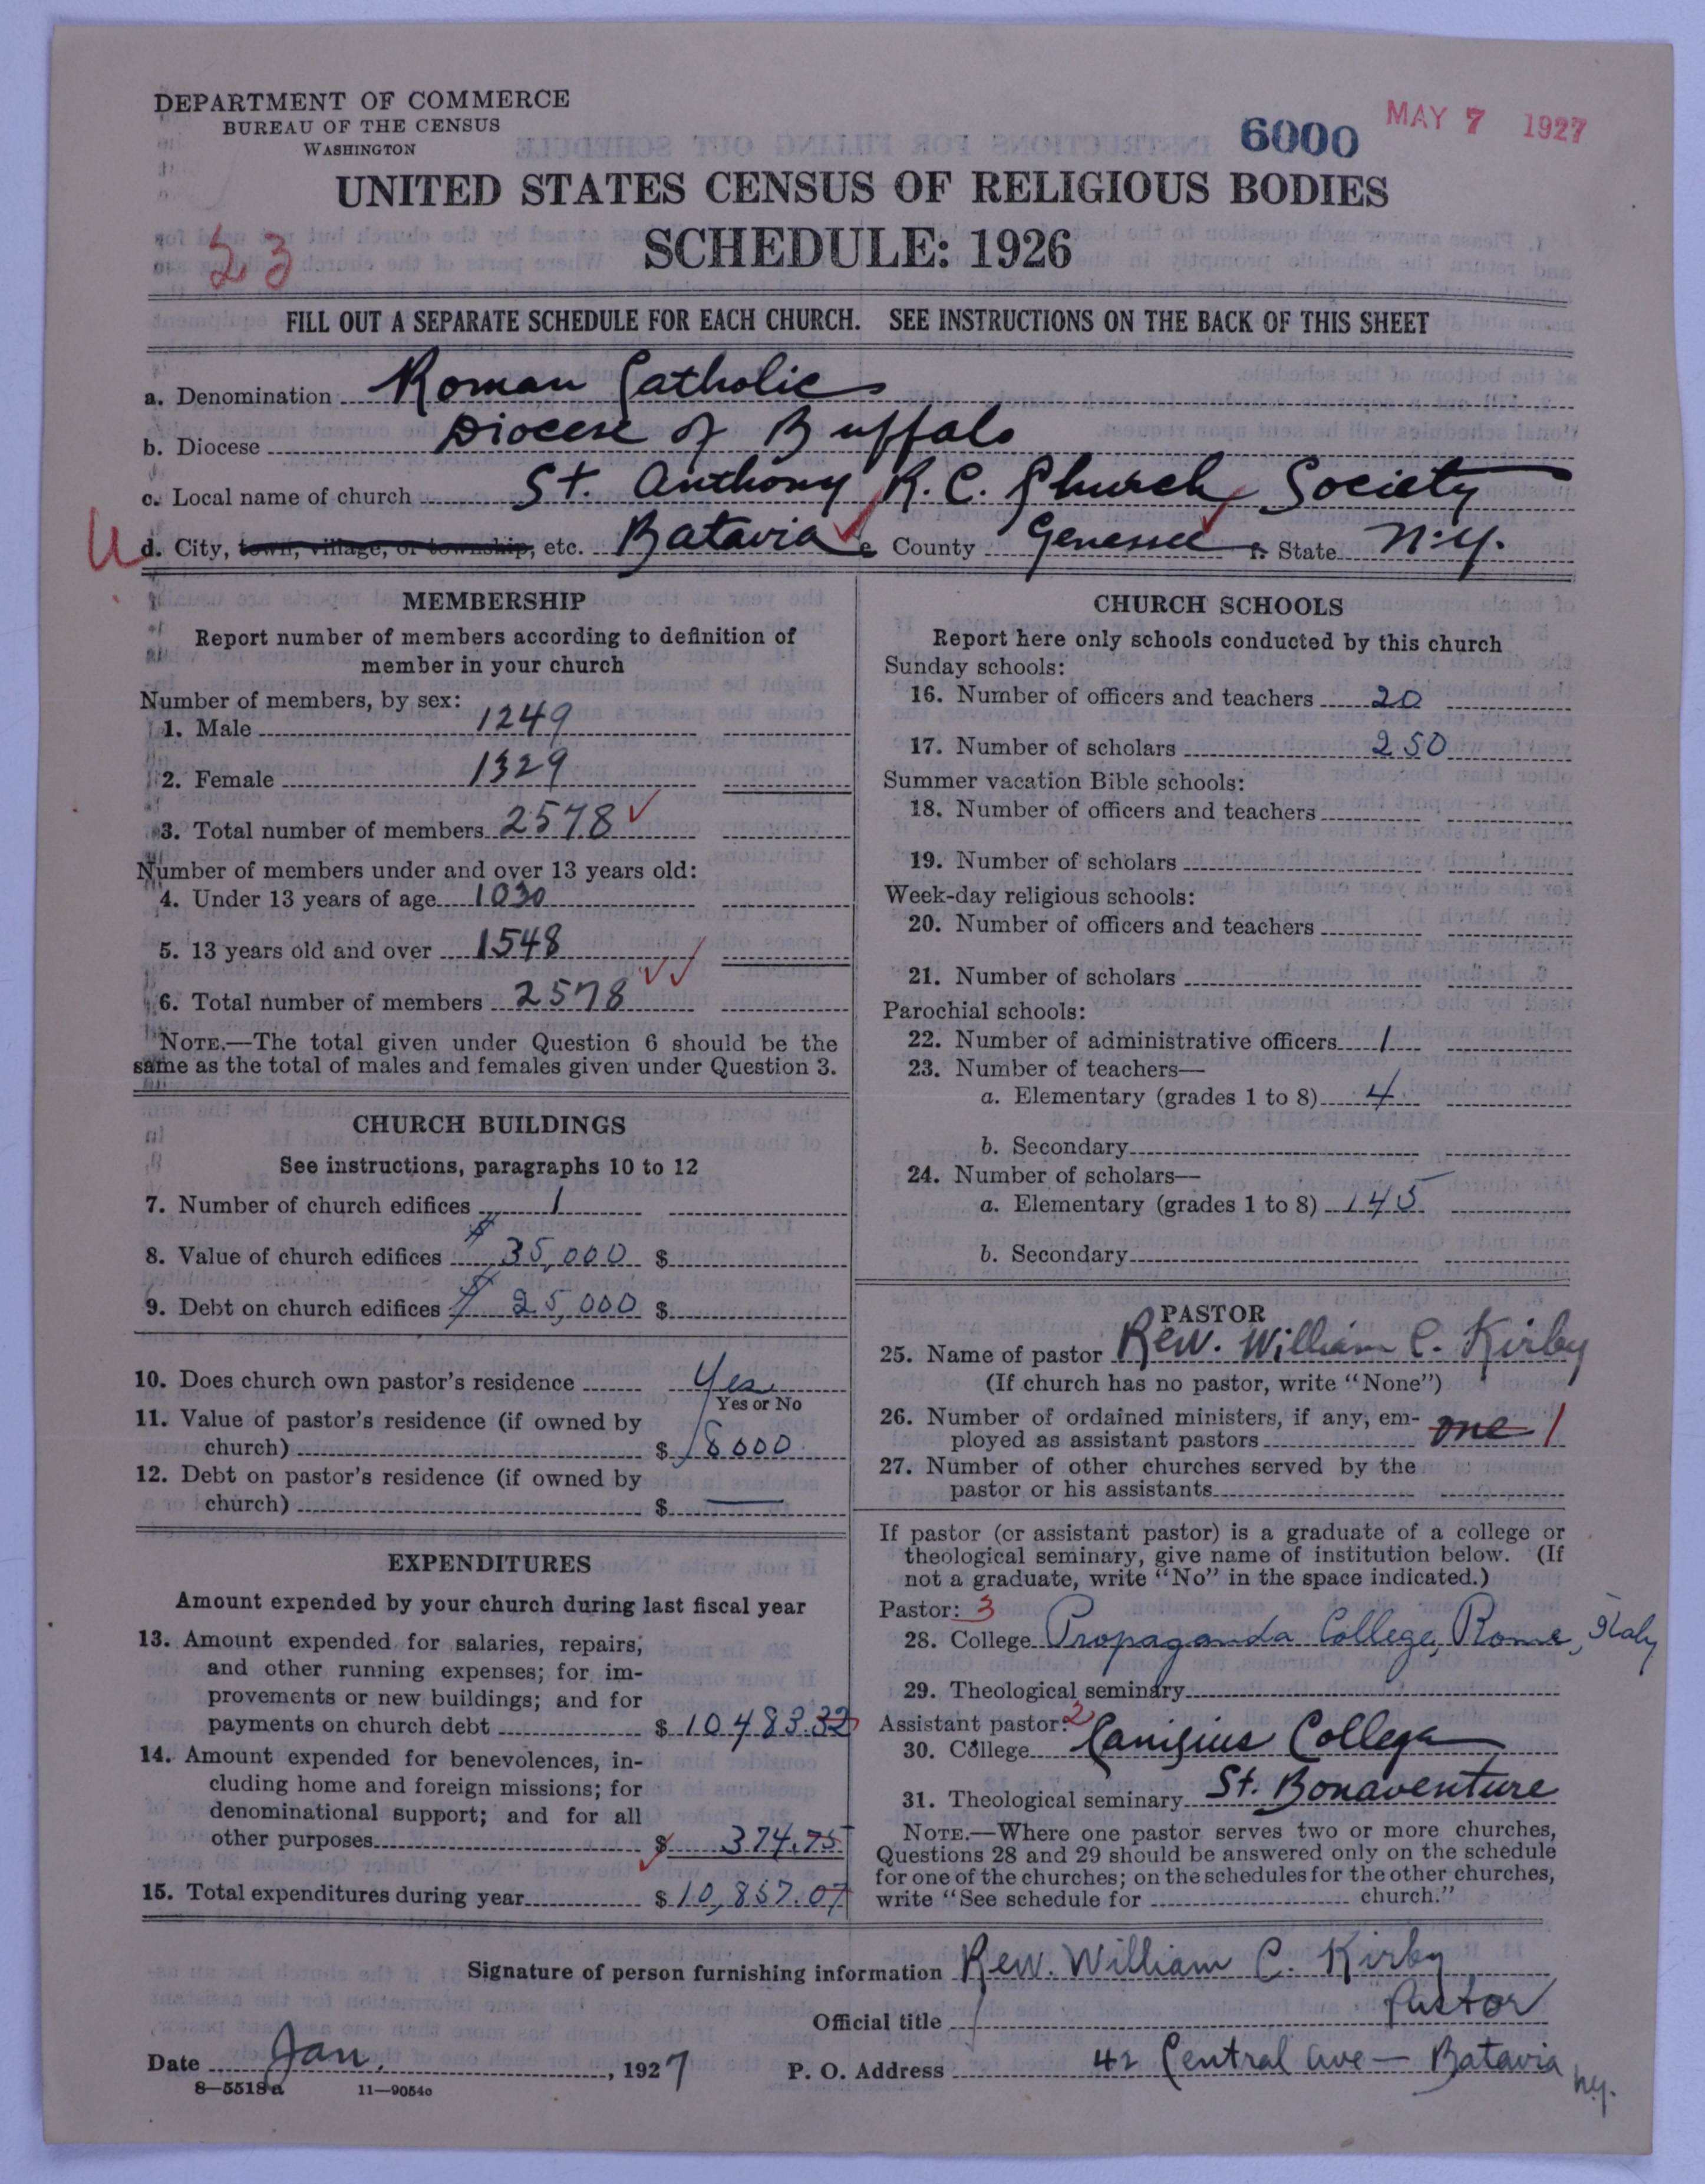 DEPARTMENT OF COMMERCE
BUREAU OF THE CENSUS
WASHINGTON
6000
MAY 7 1927
UNITED STATES CENSUS OF RELIGIOUS BODIES
SCHEDULE: 1926
23
FILL OUT A SEPARATE SCHEDULE FOR EACH CHURCH. SEE INSTRUCTIONS ON THE BACK OF THIS SHEET
a. Denomination Roman Catholic
b. Diocese Diocese of Buffalo
c. Local name of church St. Anthony R. C. Church Society
d. City, town, village, or township, etc. Batavia e. County Genesee f. State N.Y.
MEMBERSHIP
Report number of members according to definition of
member in your church
Number of members, by sex:
1. Male 1249
2. Female 1329
3. Total number of members 2578
Number of members under and over 13 years old:
4. Under 13 years of age 1030
5. 13 years old and over 1548
6. Total number of members 2578
NOTE.—The total given under Question 6 should be the
same as the total of males and females given under Question 3.
CHURCH BUILDINGS
See instructions, paragraphs 10 to 12
7. Number of church edifices 1
8. Value of church edifices $ 35,000 $
9. Debt on church edifices $ 25,000 $
10. Does church own pastor's residence Yes
Yes or No
11. Value of pastor's residence (if owned by
church) $ 18000
12. Debt on pastor's residence (if owned by
church) $ —
EXPENDITURES
Amount expended by your church during last fiscal year
13. Amount expended for salaries, repairs,
and other running expenses; for im-
provements or new buildings; and for
payments on church debt $ 10483.32
14. Amount expended for benevolences, in-
cluding home and foreign missions; for
denominational support; and for all
other purposes $ 374.75
15. Total expenditures during year $ 10,857.07
CHURCH SCHOOLS
Report here only schools conducted by this church
Sunday schools:
16. Number of officers and teachers 20
17. Number of scholars 250
Summer vacation Bible schools:
18. Number of officers and teachers
19. Number of scholars
Week-day religious schools:
20. Number of officers and teachers
21. Number of scholars
Parochial schools:
22. Number of administrative officers 1
23. Number of teachers—
a. Elementary (grades 1 to 8) 4
b. Secondary
24. Number of scholars—
a. Elementary (grades 1 to 8) 145
b. Secondary
PASTOR
25. Name of pastor Rev. William C. Kirby
(If church has no pastor, write "None")
26. Number of ordained ministers, if any, em-
ployed as assistant pastors one 1
27. Number of other churches served by the
pastor or his assistants
If pastor (or assistant pastor) is a graduate of a college or
theological seminary, give name of institution below. (If
not a graduate, write "No" in the space indicated.)
Pastor: 3
28. College Propaganda College, Rome, Italy
29. Theological seminary
Assistant pastor: 2
30. College Canisius College
31. Theological seminary St. Bonaventure
NOTE.—Where one pastor serves two or more churches,
Questions 28 and 29 should be answered only on the schedule
for one of the churches; on the schedules for the other churches,
write "See schedule for church."
Signature of person furnishing information Rev. William C. Kirby
Official title Pastor
Date Jan. , 1927 P. O. Address 42 Central Ave — Batavia N.Y.
8—5518a 11—9054c